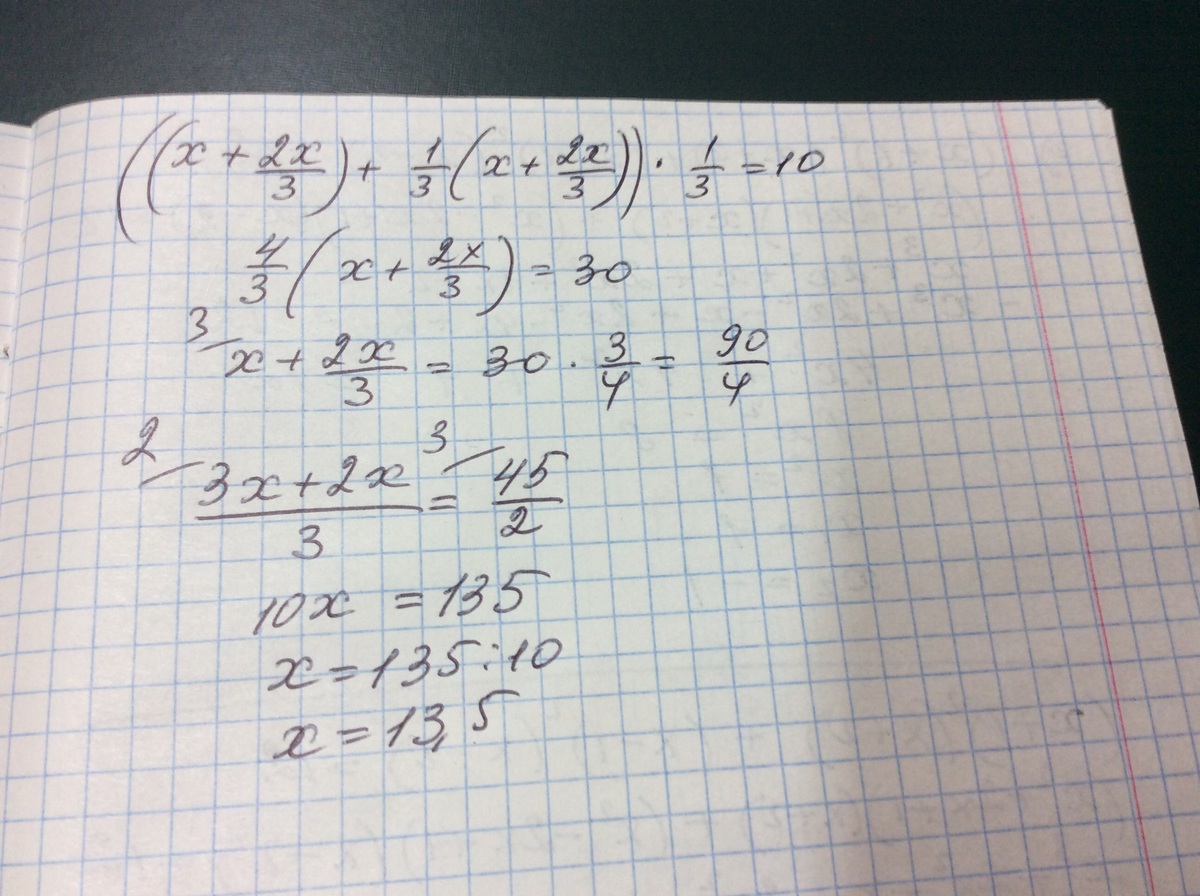 ((x + 2x/3) + 1/3(x + 2x/3)) · 1/3 = 10
4/3(x + 2x/3) = 30
3/ x + 2x/3 = 30 · 3/4 = 90/4
2/ (3x + 2x)/3 = 3/ 45/2
10x = 135
x = 135 : 10
x = 13,5